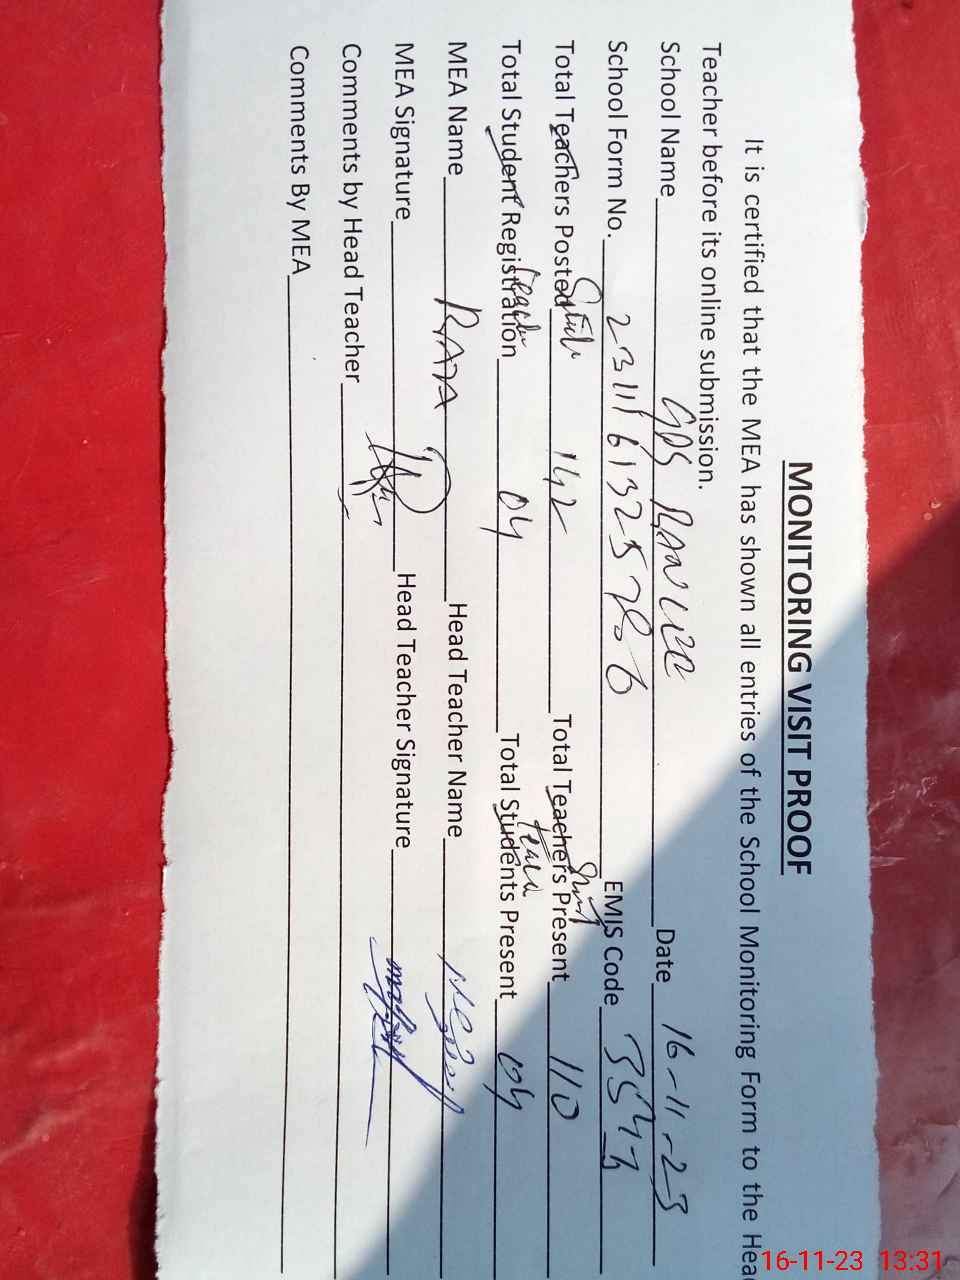 MONITORING VISIT PROOF
It is certified that the MEA has shown all entries of the School Monitoring Form to the Head
Teacher before its online submission.
School Name GPS Date 16-11-23
School Form No. EMIS Code
Total Teachers Posted 142 Total Teachers Present 110
Total Student Registration 04 Total Students Present 04
MEA Name RAZA Head Teacher Name
MEA Signature Head Teacher Signature
Comments by Head Teacher
Comments By MEA
16-11-23 13:31